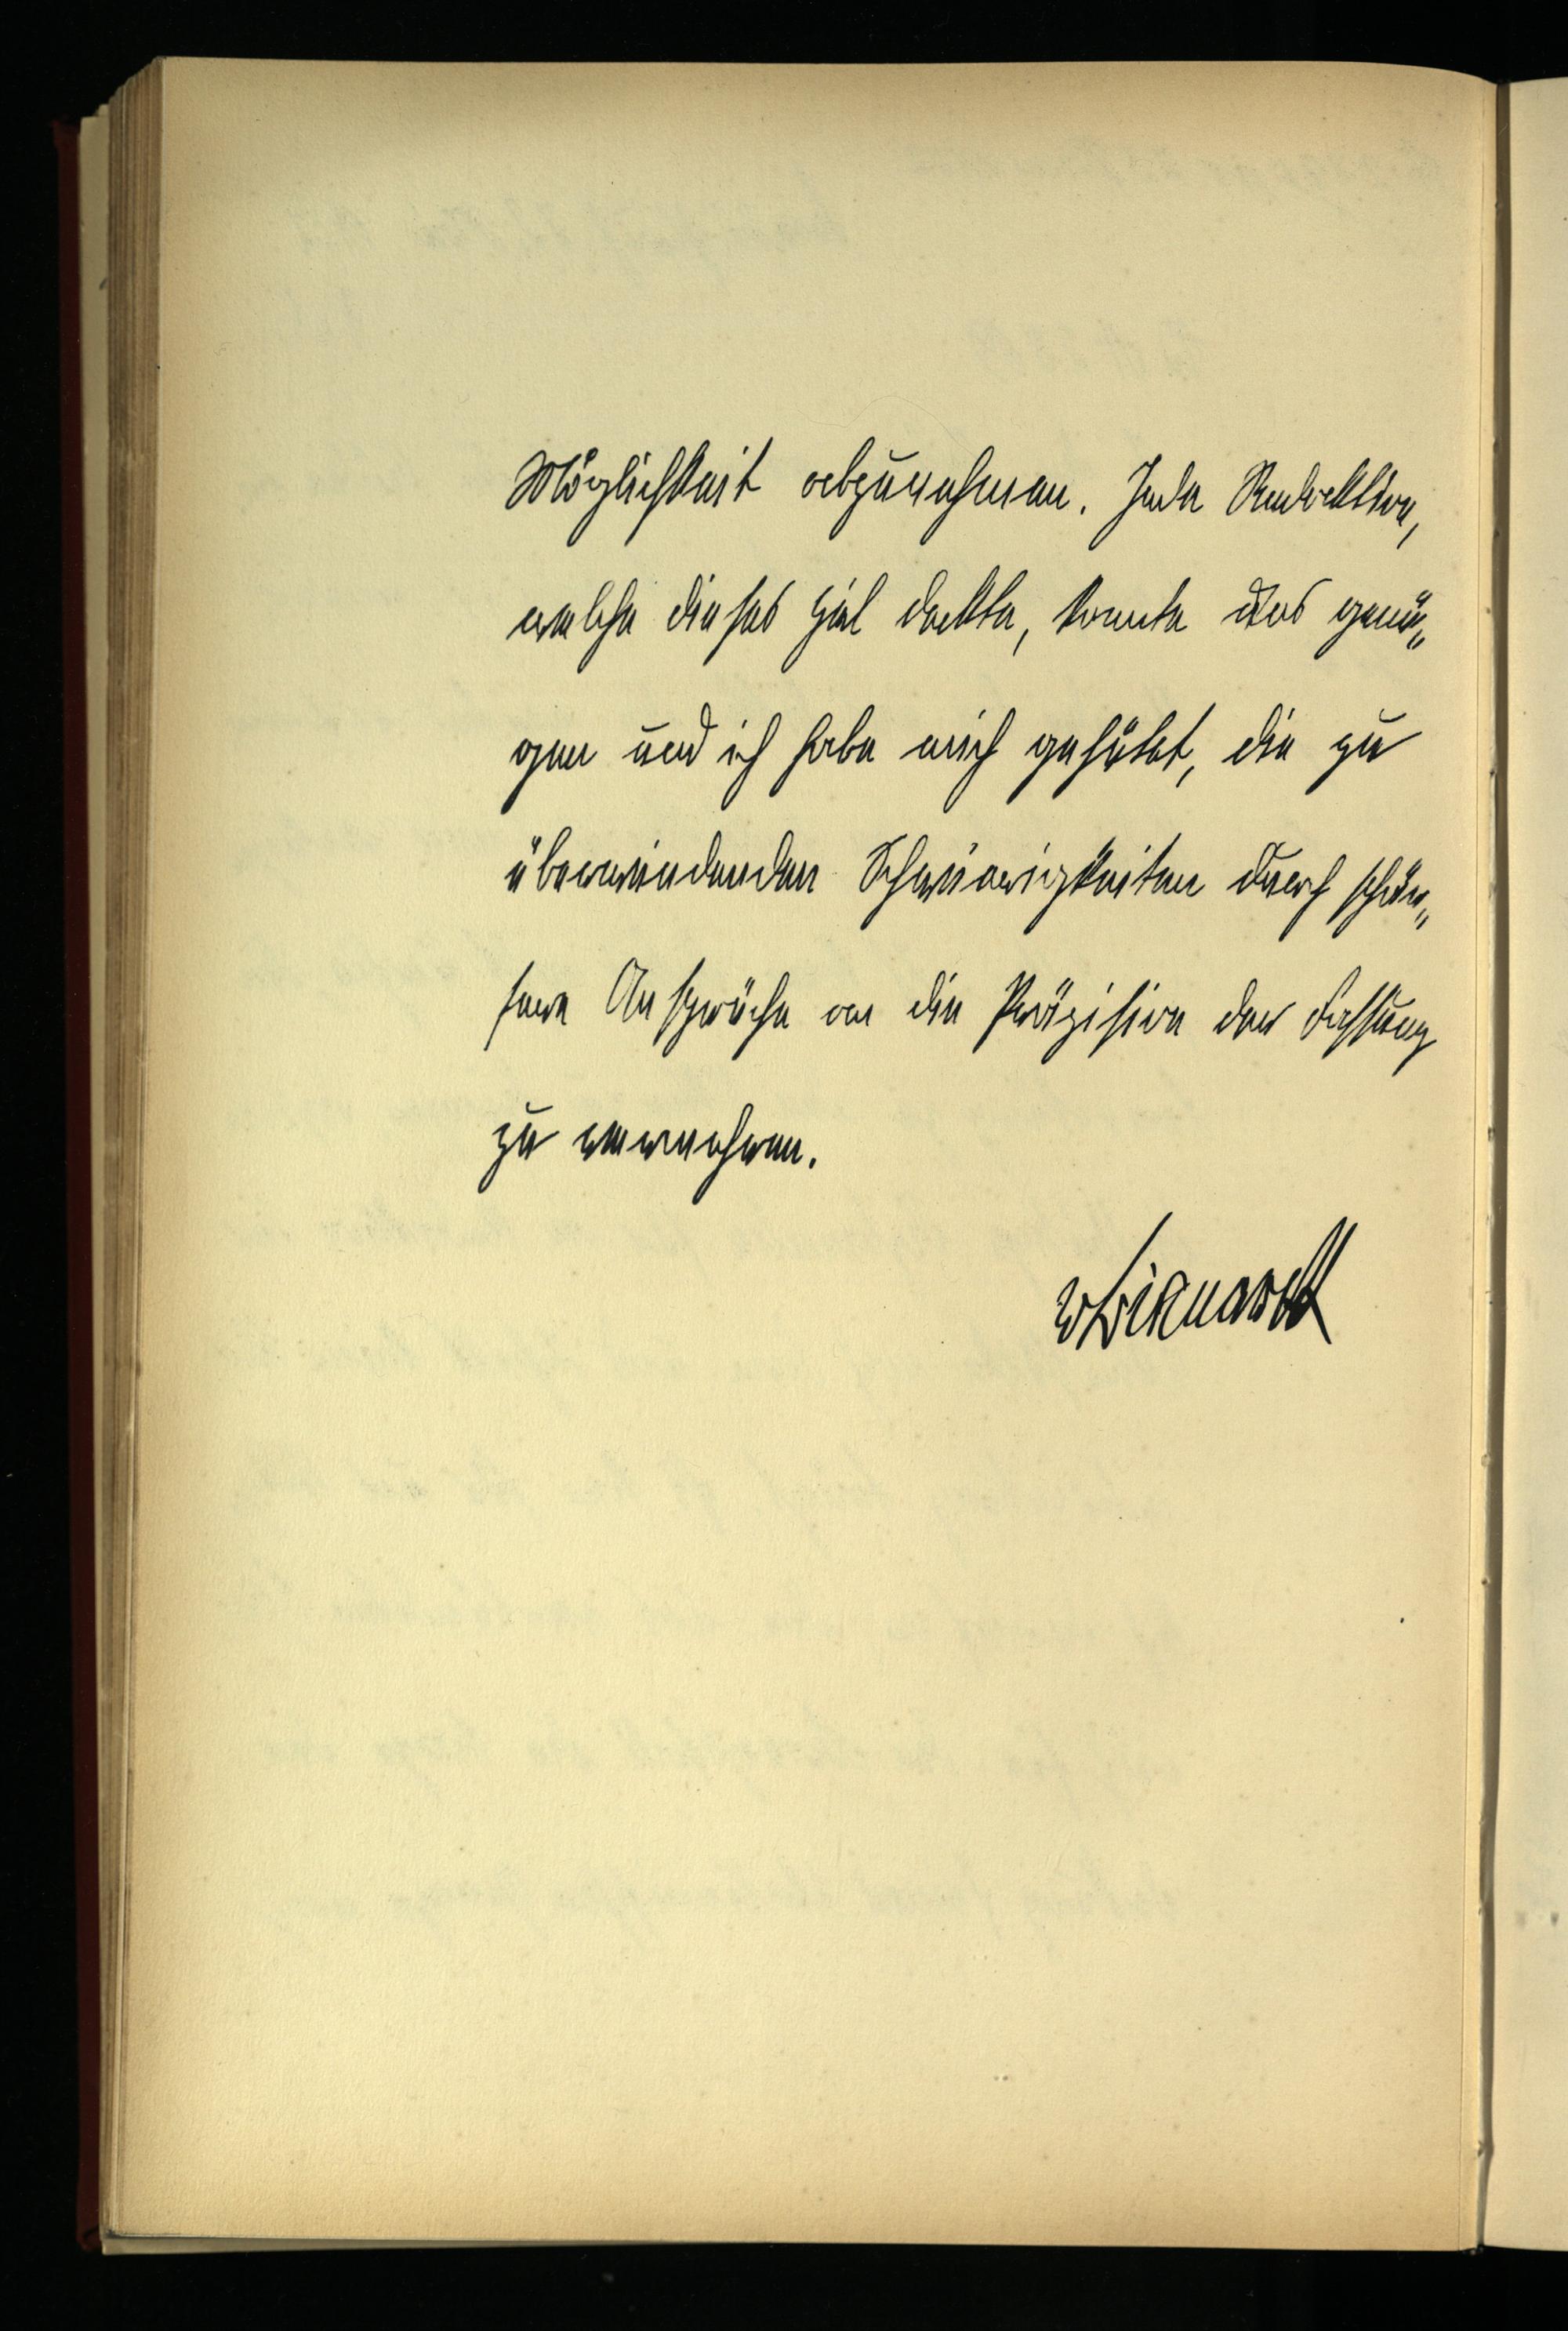 Möglichkeit abzunehmen. Jede Redaktion,
welche dieses Ziel deckte, konnte uns genü„
gen und ich habe mich gehütet, die zu
überwindenden Schwierigkeiten durch schär„
fere Ansprüche an die Präzision der Fassung
zu vermehren.
v Bismarck